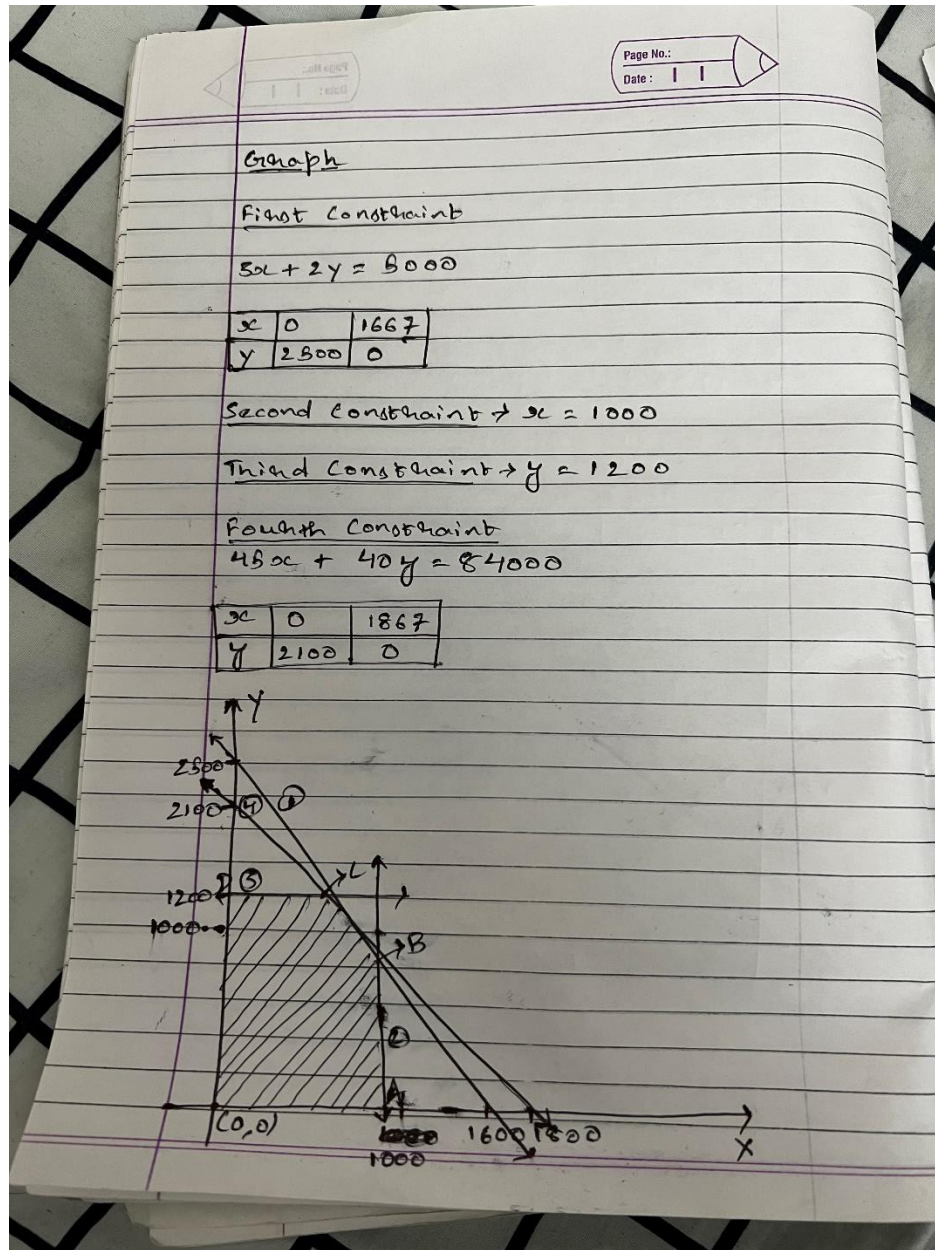 Page No.:
Date :
Graph
First Constraint
3x + 2y = 5000
x 0 1667
y 2500 0
Second Constraint → x = 1000
Third Constraint → y = 1200
Fourth Constraint
45x + 40y = 84000
x 0 1867
y 2100 0
Y
2500
2100 ④ ①
C
1200 D ③
1000
B
②
A
(0,0)
1600 1800
X
1000